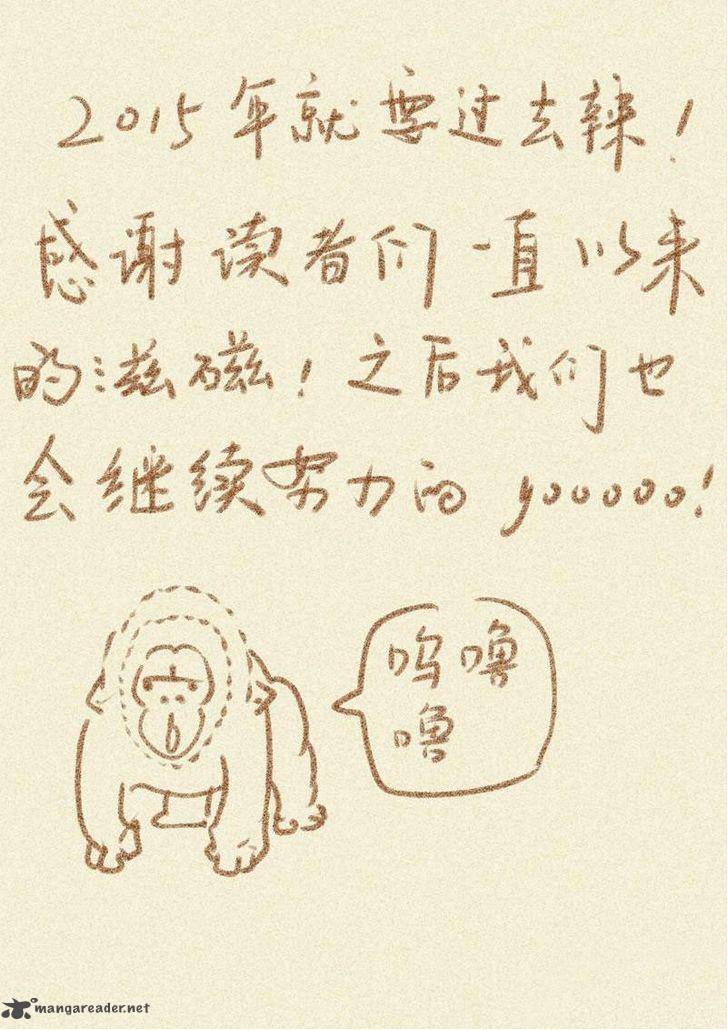 2015年就要过去辣!
感谢读者们一直以来
的滋磁!之后我们也
会继续努力的 yooooo!
呜噜
噜
mangareader.net